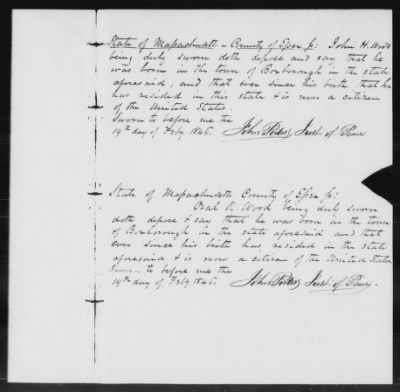 State of Massachusetts - County of Essex ss: John H. Wood
being duly sworn doth depose and say that he
was born in the town of Boxborough in the state
aforesaid, and that ever since his birth that he
has resided in this state & is now a citizen
of the United States.
Sworn to before me the
19th day of Feby 1846. John Just. of Peace
State of Massachusetts County of Essex ss:
R. Wood being duly sworn
doth depose & say that he was born in the town
of Boxborough in the state aforesaid and that
ever since his birth has resided in the state
aforesaid & is now a citizen of the United States
Sworn to before me the
19th day of Feby 1846. John Just. of Peace